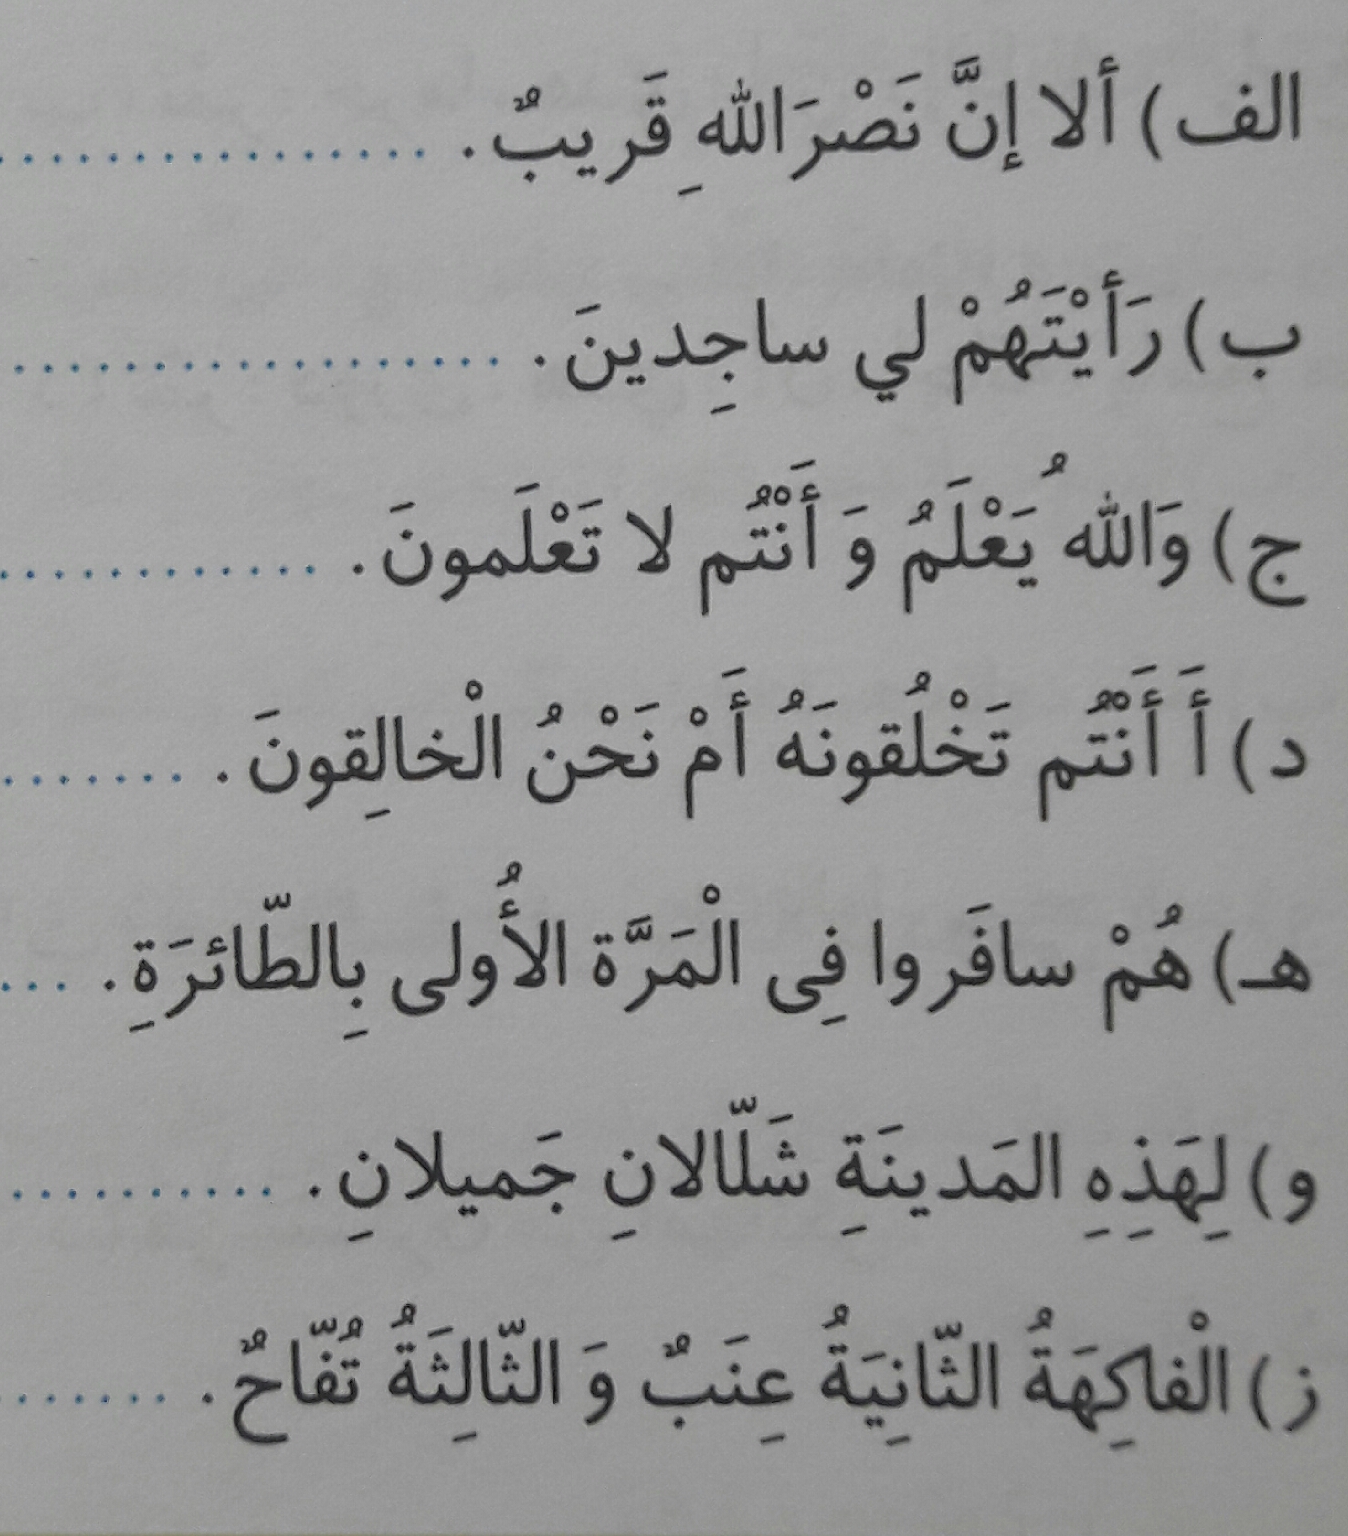 الف) ألا إنَّ نَصْرَ اللهِ قَريبٌ. ..................
ب) رَأَيْتَهُمْ لي ساجِدينَ. ..................
ج) وَاللهُ يَعْلَمُ وَ أَنْتُم لا تَعْلَمونَ. ..............
د) أَ أَنْتُم تَخْلُقونَهُ أَمْ نَحْنُ الْخالِقونَ. ........
هـ) هُمْ سافَروا فِی الْمَرَّة الأُولی بِالطّائرَةِ. ...
و) لِهَذِهِ المَدينَةِ شَلّالانِ جَميلانِ. ...........
ز) الْفاكِهَةُ الثّانِيَةُ عِنَبٌ وَ الثّالِثَةُ تُفّاحٌ. ........